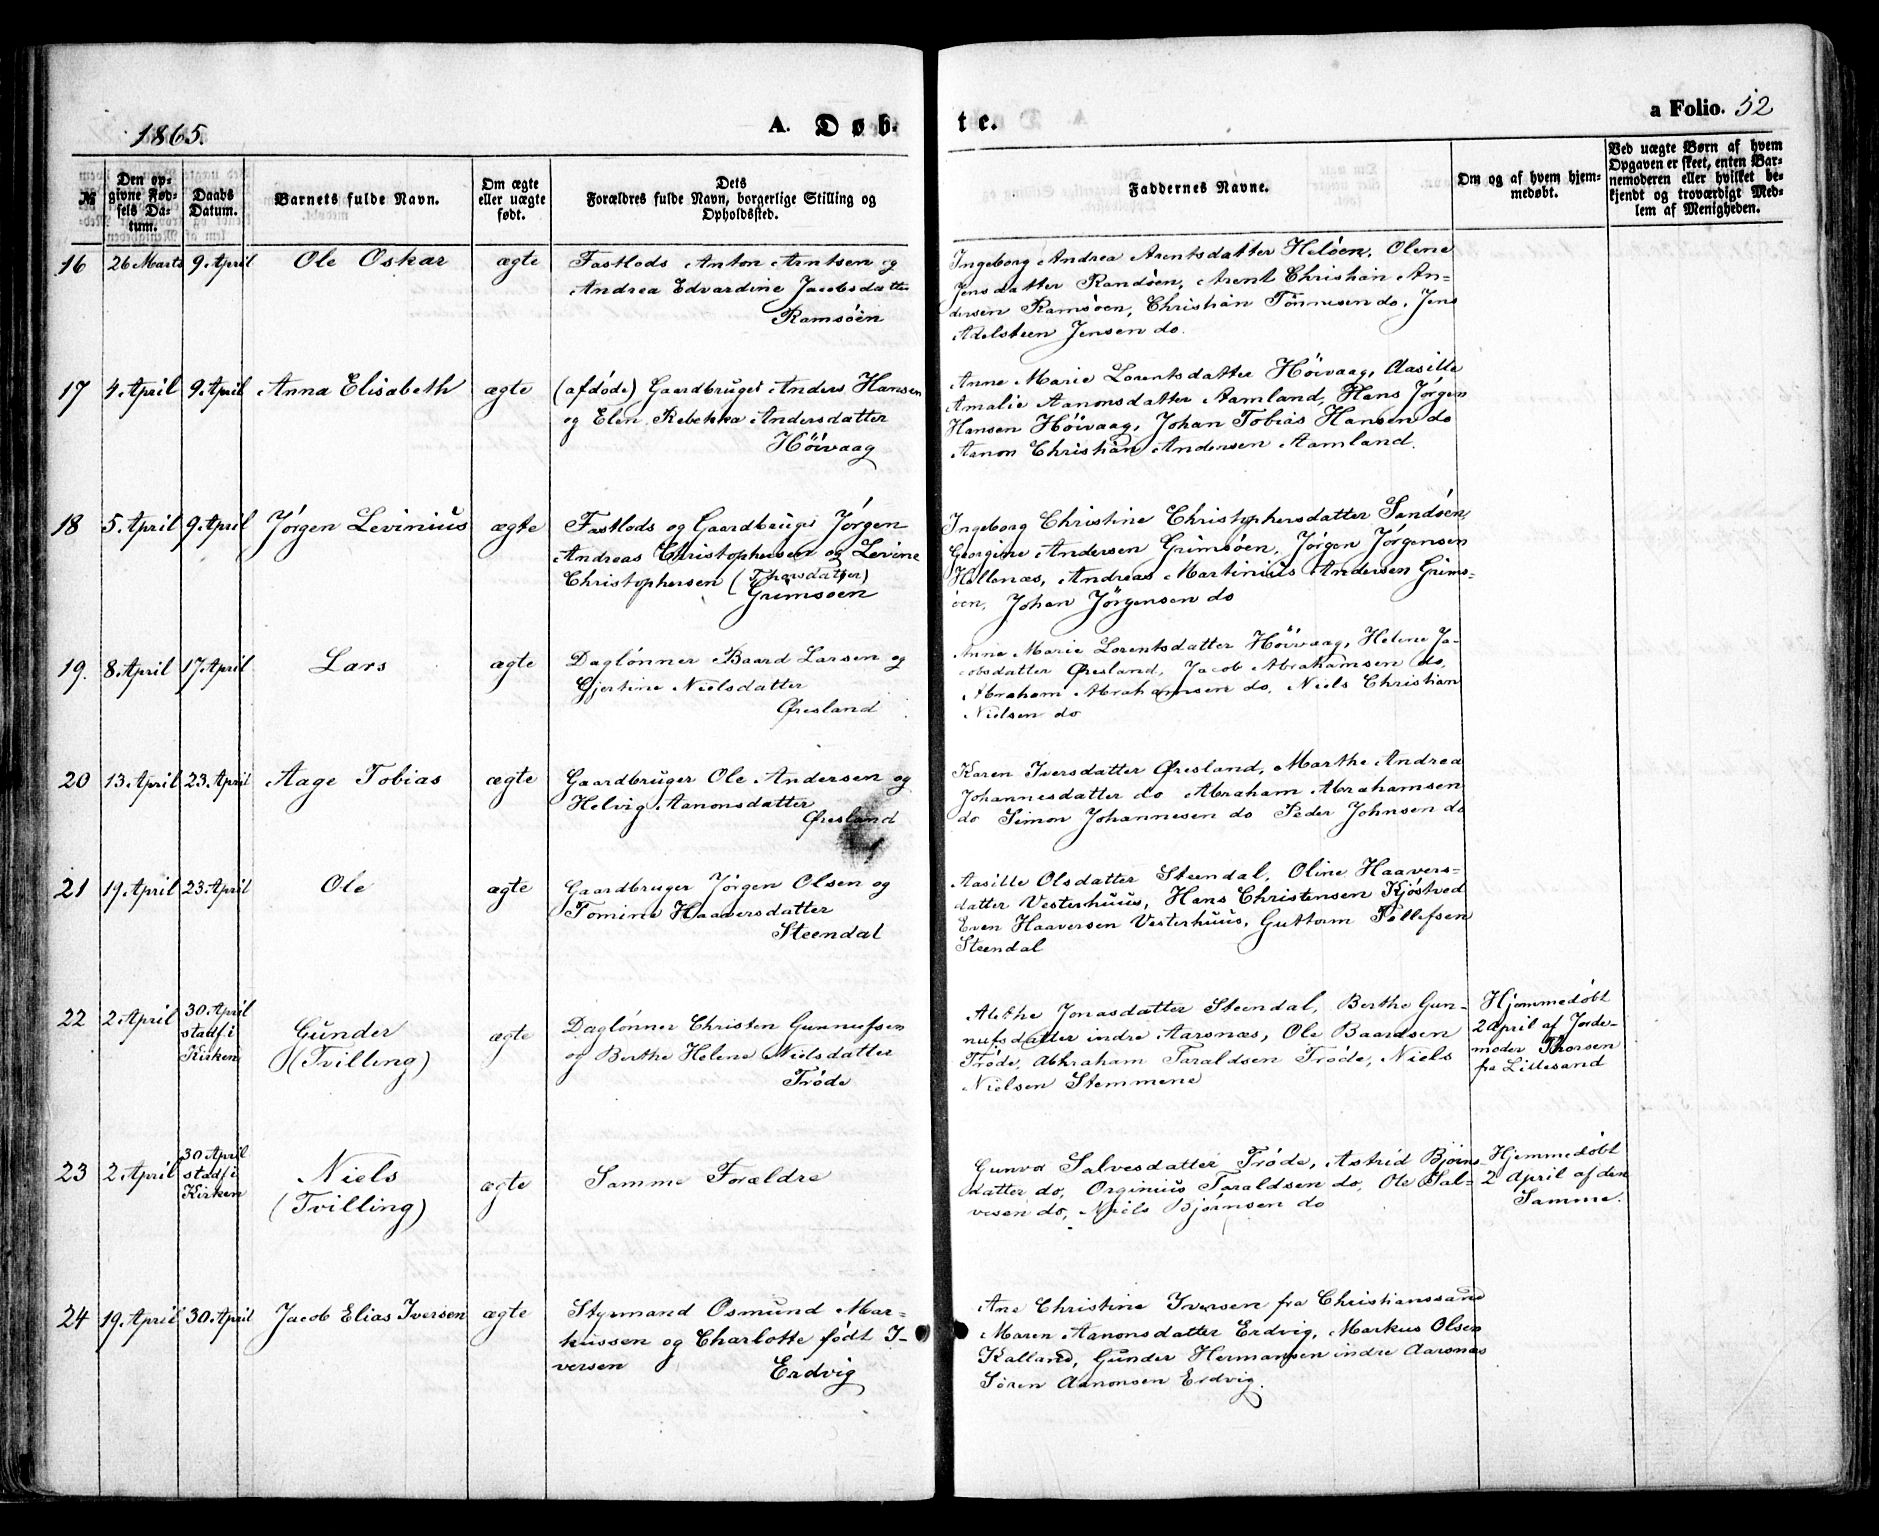 1865.
A. Døb-
te.
a Folio. 52
№
Den op-
givne Fød-
sels Da-
tum.
Daabs
Datum.
Barnets fulde Navn.
Om ægte
eller uægte
født.
Dets
Forældres fulde Navn, borgerlige Stilling og
Opholdssted.
Faddernes Navne.
Om og af hvem hjem-
medøbt.
Ved uægte Børn af hvem
Opgaven er skeet, enten Bar-
nemoderen eller hvilket be-
kjendt og troværdigt Med-
lem af Menigheden.
16 26 Marts 9 April Ole Oskar ægte
Fastlods Anton Arntsen og
Andrea Edvardine Jacobsdatter
Ramsöen
Ingeborg Andrea Arentsdatter Helöen, Olene
Jensdatter Randöen, Arent Christian An-
dersen Ramsöen, Christian Tönnesen do, Jens
Adelsteen Jensen do.
17 4 April 9 April Anna Elisabeth ægte
(afdøde) Gaardbruger Anders Hansen
og Elen Rebekka Andersdatter
Höivaag
Anne Marie Lorentsdatter Höivaag, Aasille
Amalie Aanonsdatter Aamland, Hans Jörgen
Hansen Höivaag, Johan Tobias Hansen do
Aanon Christian Andersen Aamland.
18 5 April 9 April Jörgen Levinius ægte
Fastlods og Gaardbruger Jörgen
Andreas Christophersen og Levine
Christophersen (Thorsdatter)
Grimsöen
Ingeborg Christine Christophersdatter Sandöen,
Georgine Andersen Grimsöen, Jörgen Jörgensen
Hellenæs, Andreas Martinius Andersen Grims-
öen, Johan Jörgensen do
19. 8 April 17 April Lars ægte
Daglønner Baard Larsen og
Gjertine Nielsdatter
Øresland
Anne Marie Lorentsdatter Höivaag, Helene Ja-
cobsdatter Øresland, Jacob Abrahamsen do,
Abraham Abrahamsen do, Niels Christian
Nielsen do
20 13 April 23 April Aage Tobias ægte
Gaardbruger Ole Andersen og
Helvig Aanonsdatter
Øresland
Karen Iversdatter Øresland, Marthe Andrea
Johannesdatter do Abraham Abrahamsen
do Simon Johannesen do Peder Johnsen do
21 19 April 23 April Ole ægte
Gaardbruger Jörgen Olsen og
Tomine Haaversdatter
Steendal
Aasille Olsdatter Steendal, Oline Haavers-
datter Vesterhuus, Hans Christensen Kjöstved
Even Haaversen Vesterhuus, Guttorm Tellefsen
Steendal
22 2 April 30 April
stadf. i
Kirken
Gunder
(Tvilling)
ægte
Daglønner Christen Gunnufsen
og Berthe Helene Nielsdatter
Tröde
Alethe Jonasdatter Steendal, Berthe Gun-
nufsdatter indre Aarsnæs, Ole Baardsen
Tröde, Abhraham Taraldsen Tröde, Niels
Nielsen Stemmene
Hjemmedöbt
2 April af Jorde-
moder Thorsen
fra Lillesand
23 2 April 30 April
stadf. i
Kirken
Niels
(Tvilling)
ægte
Samme Forældre
Gunvor Salvesdatter Tröde, Astrid Björns-
datter do, Orginius Taraldsen do, Ole Sal-
vesen do, Niels Björnsen do
Hjemmedöbt
2 April af den
Samme.
24 19 April 30 April Jacob Elias Iversen ægte
Styrmand Osmund Mar-
kussen og Charlotte født I-
versen
Erdvig
Ane Christine Iversen fra Christianssand
Maren Aanonsdatter Erdvig, Markus Olsen
Kalland, Gunder Hermansen indre Aarsnæs
Sören Aanonsen Erdvig.